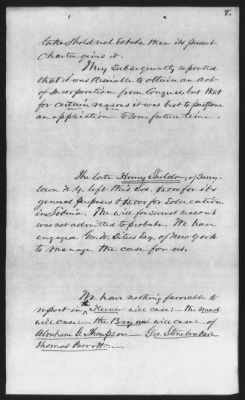 8.
to hold real Estate than its present
Charter gives it.
They subsequently reported
that it was desirable to obtain an act
of Incorporation from Congress but that
for certain reasons it was best to postpone
an application to some future time.
The late Henry Sheldon, of Tarry-
town N.Y. left this Soc. $1000 for its
general purposes & $1000 for Education
in Liberia. The will for several reasons
was not admitted to probate. We have
engaged Geo. W. Esq. of New York
to manage the case for us.
We have nothing favorable to
report in the will case - the
will case - the Bryan will case of
Abraham G. Thompson - Geo.
Thomas